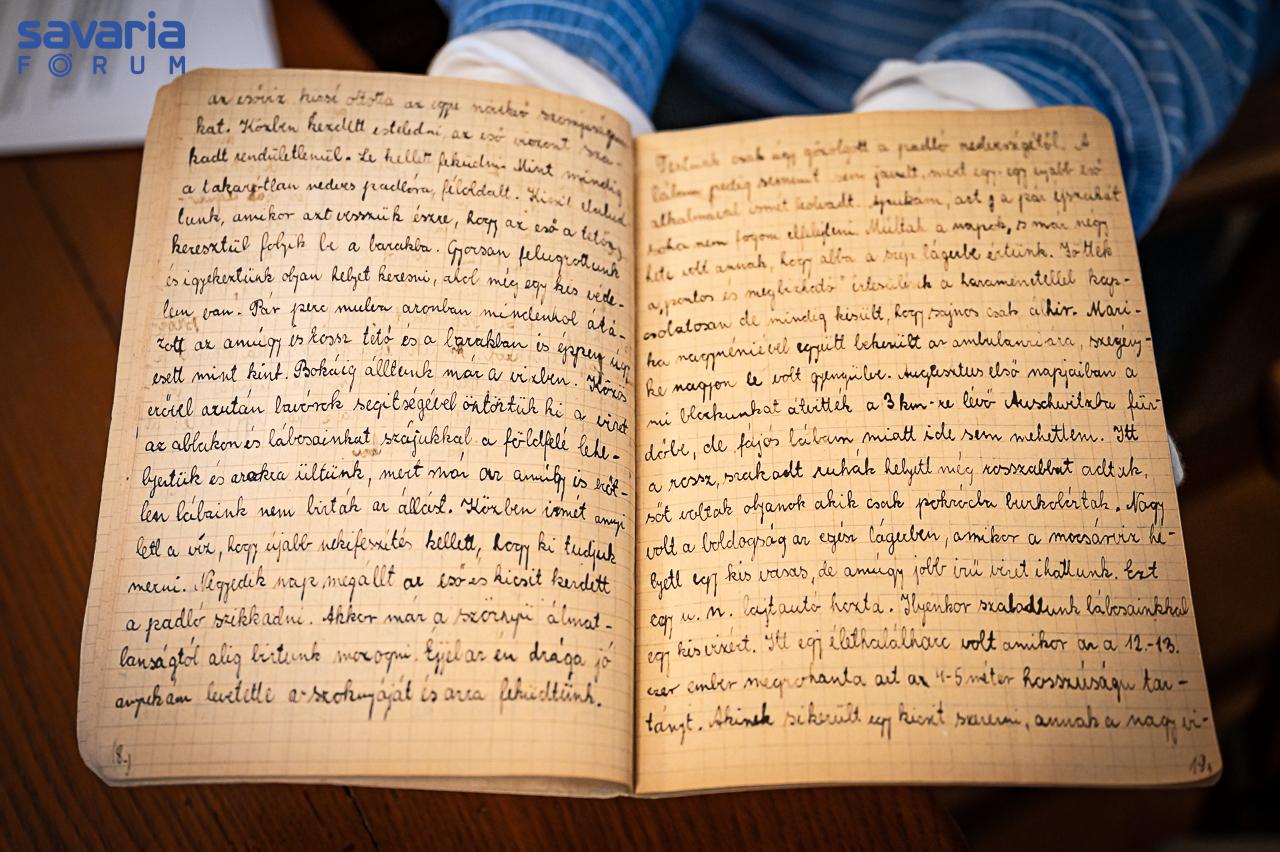 savaria
FORUM
az esővíz kissé oltotta az egyre növekvő szomjuságun-
kat. Közben kezdett esteledni, az eső viszont sza-
kadt rendületlenül. Le kellet feküdni. Mint mindig
a takarótlan nedves padlóra, féloldalt. Kicsit elalud
tunk, amikor azt vesszük észre, hogy az eső a tetőn
keresztül folyik be a barakba. Gyorsan felugrottunk
és igyekeztünk olyan helyet keresni, ahol még egy kis véde-
lem van. Pár perc mulva azonban mindenhol átá-
zott az amúgy is rossz tető és a barakban is éppen úgy
esett mint kint. Bokáig álltunk már a vizben. Közös
erővel azután lavórok segitségével öntöttük ki a vizet
az ablakon és lábosainkat szájukkal a földfelé lehe-
lyeztük és arra ültünk, mert már az amúgy is erőt-
len lábaink nem birták az állást. Közben ismét annyi
lett a víz, hogy újabb nekifeszítés kellett, hogy ki tudjuk
merni. Negyedik nap megállt az eső és kicsit kezdett
a padló szikkadni. Akkor már a szörnyü álmat-
lanságtól alig birtunk mozogni. Éjjel az én drága jó
anyukám levetette a szoknyáját és arra feküdtünk.
18.)
Testünk csak úgy gőzölgött a padló nedvességétől. A
lábam pedig semmit sem javult, mert egy-egy ujabb eső
alkalmával ismét kiázadt. Anyukám, azt a pár éjszakát
soha nem fogom elfelejteni. Múltak a napok, s már négy
hete volt annak, hogy abba a  lágerbe értünk. Jöttek
a „pontos és megbizható" értesülések a hazamenetellel kap-
csolatosan de mindig kisült, hogy sajnos csak álhír. Mari-
ka nagynénjével együtt bekerült az ambulanciára, szegény-
ke nagyon le volt gyengülve. Augusztus első napjaiban a
mi blockunkat átvitték a 3 km-re lévő Auschwitzba für-
dőbe, de fájós lábam miatt ide sem mehettem. Itt
a rossz, szakadt ruhák helyett még rosszabbat adtak,
sőt voltak olyanok akik csak pokrócba burkolóztak. Nagy
volt a boldogság az egész lágerben, amikor a mocsárviz he-
lyett egy kis vasas, de amúgy jobb izű vizet ihattunk. Ezt
egy u. n. lajtautó hozta. Ilyenkor szaladtunk lábosainkkal
egy kis vizért. Itt egy élethalálharc volt amikor az a 12.-13.
ezer ember megrohanta azt az 4-5 méter hosszúságu tar-
tányt. Akinek sikerült egy kicsit szerezni, annak a nagy vi-
19.